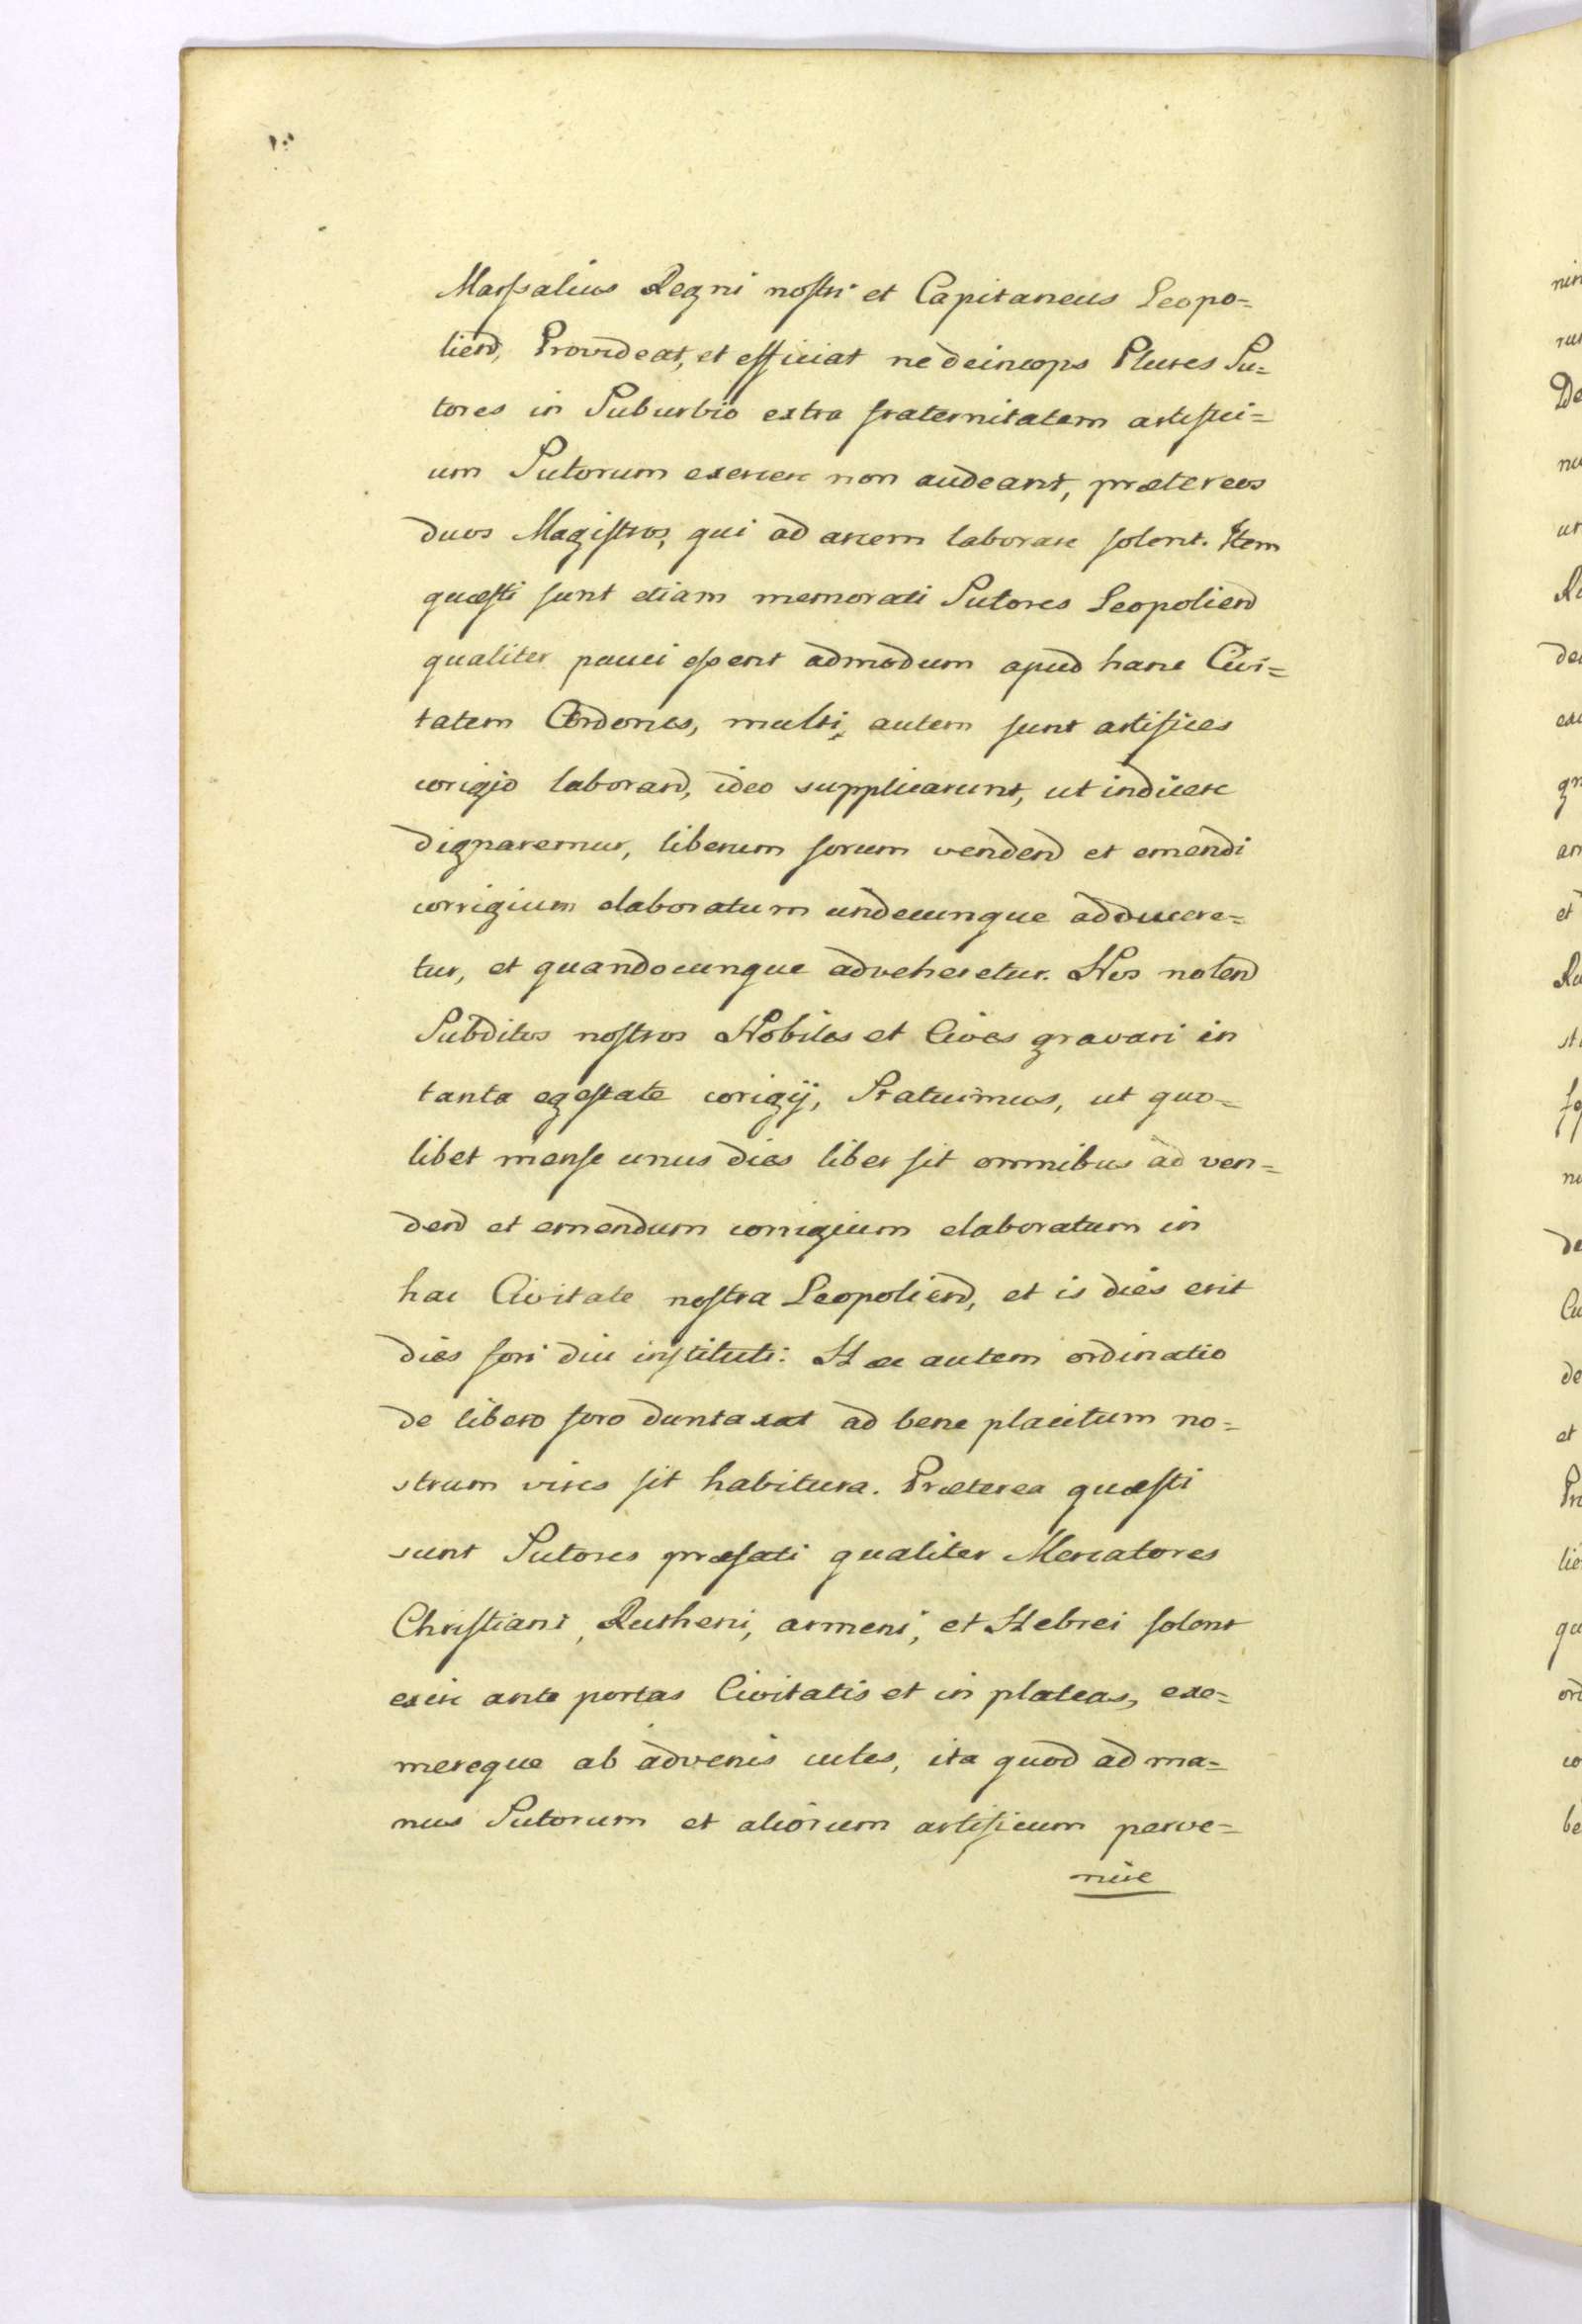 Marssalius Regni nostri et Capitaneus Leopo=
liend, Provideat, et efficiat ne deinceps Plures Su=
tores in Suburbio extra fraternitatem artifici=
um Sutorum exercere non audeant, præter eos
duos Magistros, qui ad arcem laborare solent. Item
quæsti sunt etiam memorati Sutores Leopoliend
qualiter pauci essent admodum apud hanc Civi=
tatem Cerdones, multi, autem sunt artifices
corigio laborand, ideo supplicarunt, ut indicere
dignaremur, liberum forum vendend et emendi
corrigium elaboratum undecunque adducere=
tur, et quandocunque adveheretur. Nos nolend
Subditos nostros Nobiles et Cives gravari in
tanta egestate corigij, Statuimus, ut quo=
libet mense unus dies liber sit omnibus ad ven=
dend et emendum corrigium elaboratum in
hac Civitate nostra Leopoliend, et is dies erit
dies fori diu instituti: Hæc autem ordinatio
de libero foro duntaxat ad bene placitum no=
strum vires sit habitura. Præterea quæsti
sunt Sutores præfati qualiter Mercatores
Christiani, Rutheni, armeni, et Hebrei solent
exire ante portas Civitatis et in plateas, exe=
mereque ab advenis cutes, ita quod ad ma=
nus Sutorum et aliorum artificum perve=
nire